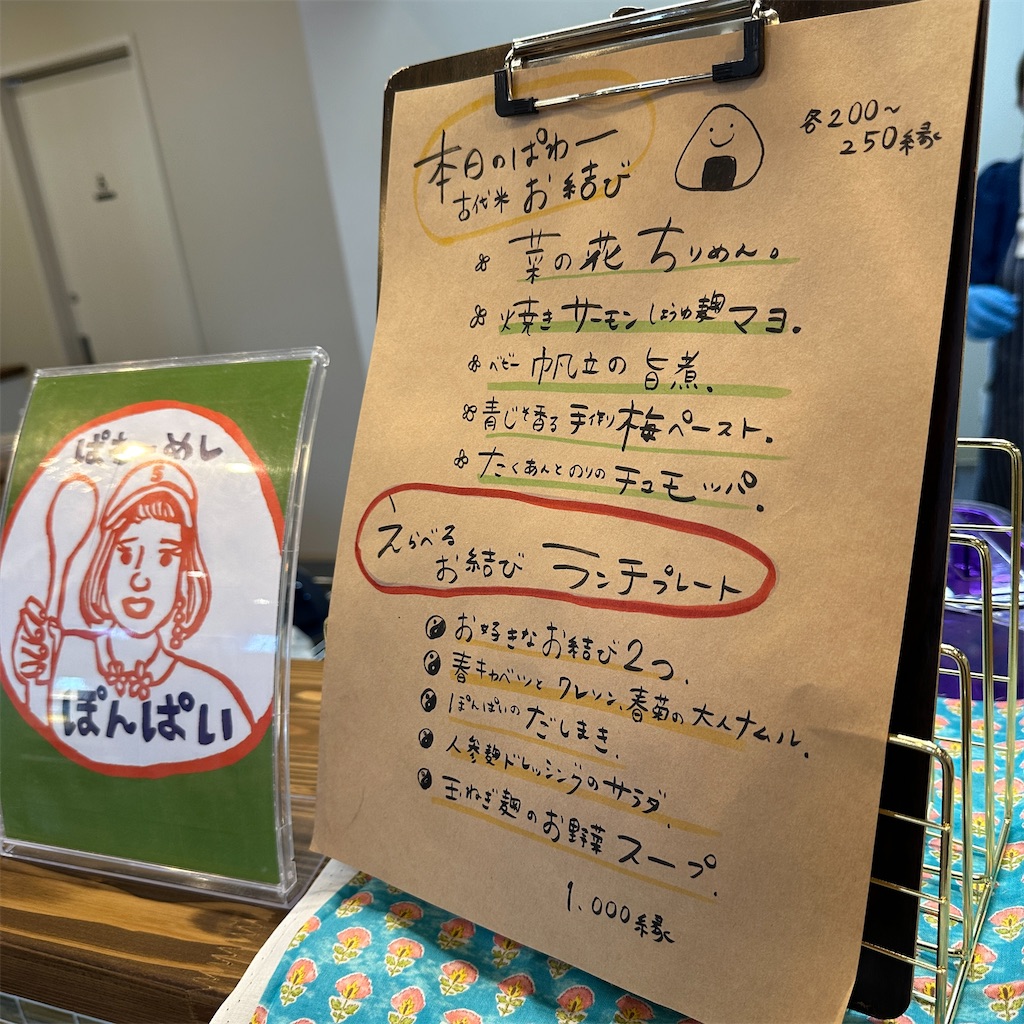 本日のぱわー
古代米 お結び
各200～
250縁
菜の花 ちりめん。
焼き サーモン しょうゆ麹 マヨ.
ベビー 帆立の 旨煮.
青じそ香る 手作り 梅ペースト.
たくあんとのりの チュモッパ.
えらべる
お結び ランチプレート
お好きなお結び2つ.
春キャベツと クレソン、春菊の 大人ナムル.
ぽんぱいの だしまき.
人参麹ドレッシングのサラダ.
玉ねぎ麹のお野菜 スープ.
1.000縁
ぱわーめし
S
ぽんぱい